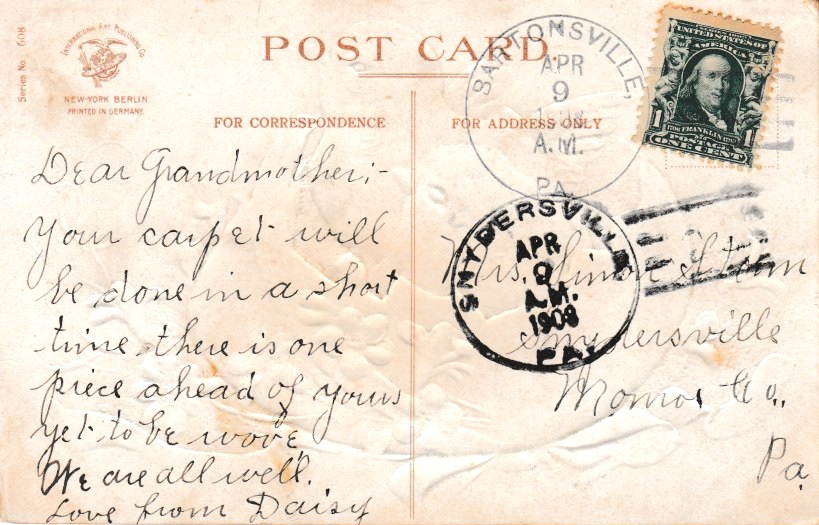 Series No. 608
INTERNATIONAL ART PUBLISHING CO.
NEW-YORK BERLIN
PRINTED IN GERMANY
POST CARD
FOR CORRESPONDENCE
FOR ADDRESS ONLY
SARTONSVILLE,
APR
9
A.M.
PA.
UNITED STATES OF
AMERICA
1 FRANKLIN 1
ONE CENT
SNYDERSVILLE
APR
9
A.M.
1908
PA.
Dear Grandmother;-
Your carpet will
be done in a short
time, there is one
piece ahead of yours
yet to be wove.
We are all well.
Love from Daisy
Mrs. Simon
Snydersville
Monroe Co.,
Pa